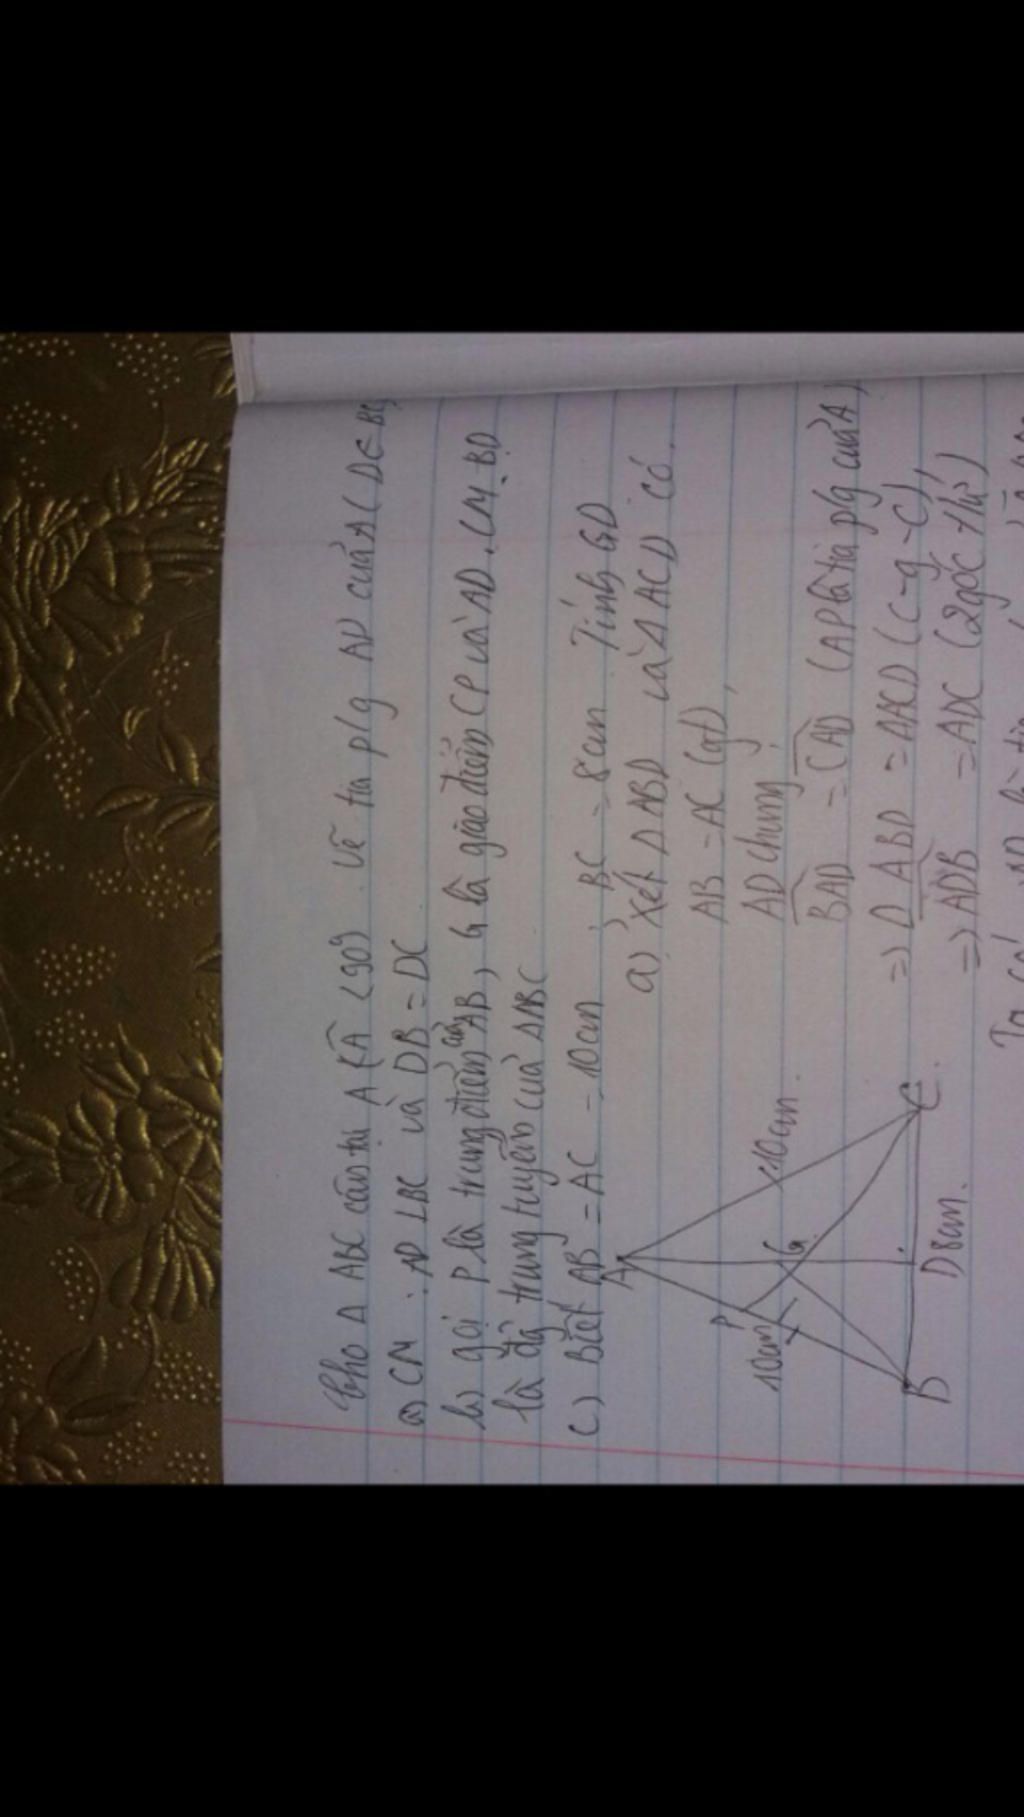 Cho Δ ABC cân tại A (Â < 90°). Vẽ tia p/g AD của A (D ∈ BC)
a) CM: AD ⊥ BC và DB = DC
b) gọi P là trung điểm của AB, G là giao điểm CP và AD. CM: BD
là đg trung tuyến của ΔABC
c) Biết AB = AC = 10cm, BC = 8cm Tính GD
a) Xét Δ ABD và Δ ACD có.
AB = AC (gt)
AD chung
BAD = CAD (AD là tia p/g của A)
=> Δ ABD = ΔACD (c-g-c)
=> ADB = ADC (2 góc t/ứ)
Ta có
A
P
10cm
10cm.
G
B
D 8cm.
C